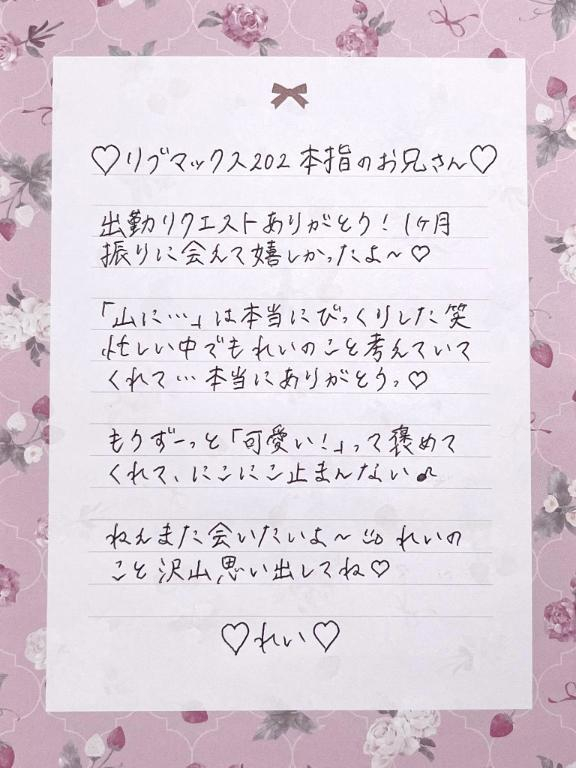 ♡リブマックス202 本指のお兄さん♡
出勤リクエストありがとう！1ヶ月
振りに会えて嬉しかったよ～♡
「山に…」は本当にびっくりした笑
忙しい中でもれいのこと考えていて
くれて…本当にありがとうっ♡
もうずーっと「可愛い！」って褒めて
くれて、にこにこ止まんない♪
ねえまた会いたいよ～ れいの
こと沢山思い出してね♡
♡れい♡